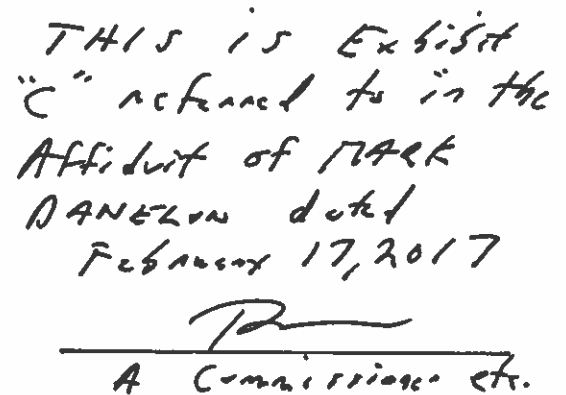 THIS is Exhibit
"C" referred to in the
Affidavit of MARK
DANELON dated
February 17, 2017
A Commissioner etc.